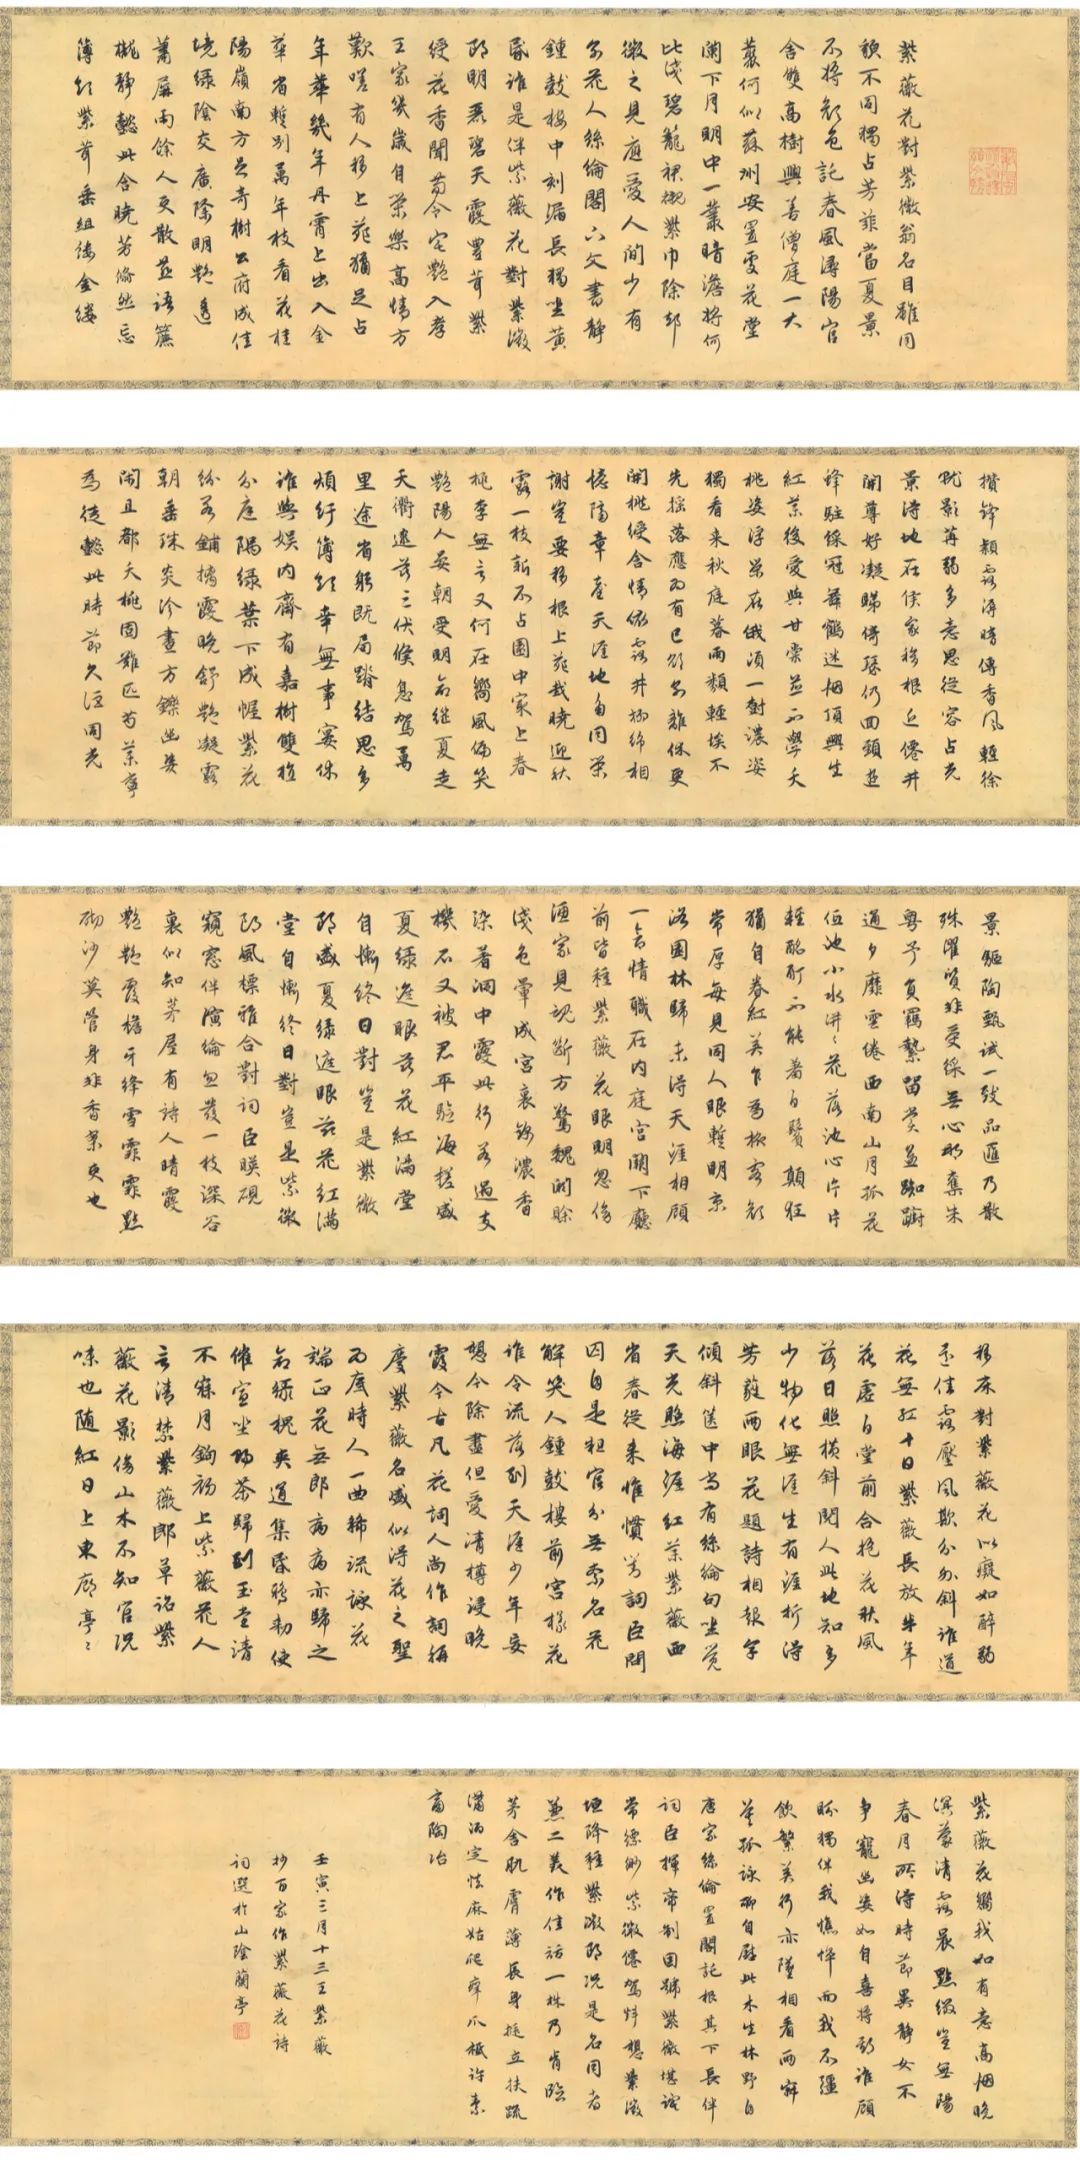 紫薇花對紫微翁名目雖同
貌不同獨占芳菲當夏景
不將顏色託春風潯陽官
舍雙高樹興善僧庭一大
叢何似蘇州安置處花堂
闌下月明中一叢暗澹將何
比淺碧籠裙襯紫巾除却
微之見應愛人間少有
別花人絲綸閣下文書靜
鍾鼓樓中刻漏長獨坐黃
昏誰是伴紫薇花對紫微
郎明麗碧天霞豐茸紫
綬花香聞荀令宅艷入孝
王家幾歲自榮樂高情方
歎嗟有人移上苑猶足占
年華幾年丹霄上出入金
華省暫別萬年枝看花桂
陽嶺南方足奇樹公府成佳
境綠陰交廣除明艷透
蕭屏雨餘人更散燕語簾
櫳靜懿此含曉芳翛然忘
簿領紫茸垂組縷金縷
攢鋒穎露溽暗傳香風輕徐
就影苒弱多意思從容占光
景得地在侯家移根近僊井
開尊好凝睇倚瑟仍回頸遊
蜂駐綵冠舞鶴迷烟頂興生
紅藥後愛與甘棠並不學夭
桃姿浮榮在俄頃一樹濃姿
獨看來秋庭暮雨類輕埃不
先搖落應為有已欲別離休更
開桃綬含情依露井柳綿相
憶隔章臺天涯地角同榮
謝豈要移根上苑栽曉迎秋
露一枝新不占園中最上春
桃李無言又何在嚮風偏笑
艷陽人晏朝受明命繼夏走
天衢逮茲三伏候息駕萬
里途省躬既局蹐結思多
煩紆簿領幸無事宴休
誰與娛內齋有嘉樹雙植
分庭隅綠葉下成幄紫花
紛若鋪摛霞晚舒艷凝露
朝垂珠炎沴晝方鑠幽姿
閑且都夭桃固難匹芍藥寧
為徒懿此時節久詎同光
景驅陶甄試一致品匯乃散
殊濯質非受綵無心那奪朱
粵予負羈縶留賞益踟躕
通夕靡雲倦西南山月孤花
伍池小水湃々花落池心片片
輕酩酊不能著白鬢顛狂
猶自眷紅英乍為旅客顏
常厚每見同人眼暫明京
洛園林歸未得天涯相顧
一含情職在內庭宮闕下廳
前皆種紫薇花眼明忽傍
漁家見說斷方驚魏闕賒
淺色暈成宮裏錦濃香
染著洞中霞此行若遇支
機石又被君平驗海槎盛
夏綠遮眼茲花紅滿堂
自慚終日對豈是紫微
郎盛夏綠遮眼茲花紅滿
堂自慚終日對豈是紫微
郎風標雅合對詞臣暎硯
窺窓伴演綸忽發一枝深谷
裏似知茅屋有詩人晴霞
艷艷霞檐牙絳雪霏霏點
砌沙莫管身非香案吏也
移床對紫薇花似癡如醉弱
還佳露壓風欺分外斜誰道
花無紅十日紫薇長放半年
花虛白堂前合抱花秋風
落日照橫斜閱人此地知多
少物化無涯生有涯折得
芳蕤兩眼花題詩相報字
傾斜篋中尚有絲綸句坐覺
天光照海涯紅葉紫薇西
省春從來惟慣笑詞臣問
囚自是粗官分無奈名花
解笑人鍾鼓樓前宮樣花
誰令流落到天涯少年妄
想今除盡但愛清樽浸晚
霞今古凡花詞人尚作詞稱
慶紫薇名盛似得花之聖
為底時人一曲稀流詠花
端正花無郎病病亦歸之
命綠槐夾道集昏鴉勅使
催宣坐賜茶歸到玉堂清
不寐月鉤初上紫薇花人
言清禁紫薇郎草詔紫
薇花影傍山木不知官況
味也隨紅日上東廊亭々
紫薇花嚮我如有意高烟晚
溟蒙清露晨點綴豈無陽
春月所得時節異靜女不
爭寵幽姿如自喜將勤誰顧
眄獨伴我憔悴而我不彊
飲繁英行亦墜相看兩寂
寞孤詠聊自慰此木生林野自
唐家絲綸置閣託根其下長伴
詞臣揮帝制因號紫微堪詫
常標緲紫微僊駕忤想紫微
垣降種紫微郎況是名同者
兼二美作佳話一株乃肯臨
茅舍肌膚薄長身挺立扶疏
瀟洒定怯麻姑爬痒爪柢許素
商陶冶
壬寅三月十三王紫薇
抄百家作紫薇花詩
詞選於山陰蘭亭